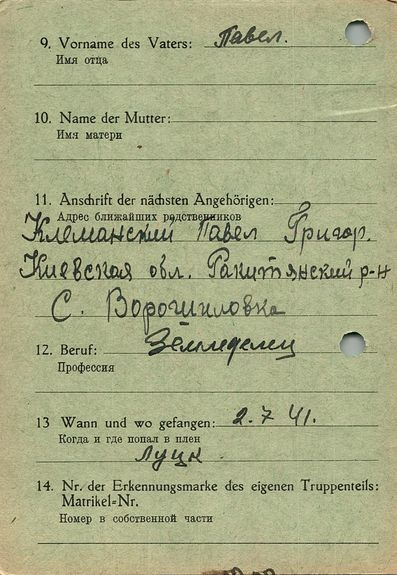 9. Vorname des Vaters: Павел.
Имя отца
10. Name der Mutter:
Имя матери
11. Anschrift der nächsten Angehörigen:
Адрес ближайших родственников
Клеманский Павел Григор.
Киевская обл. Ракитянский р-н
С. Ворошиловка
12. Beruf: Земледелец
Профессия
13 Wann und wo gefangen: 2.7 41.
Когда и где попал в плен
Луцк
14. Nr. der Erkennungsmarke des eigenen Truppenteils:
Matrikel=Nr.
Номер в собственной части